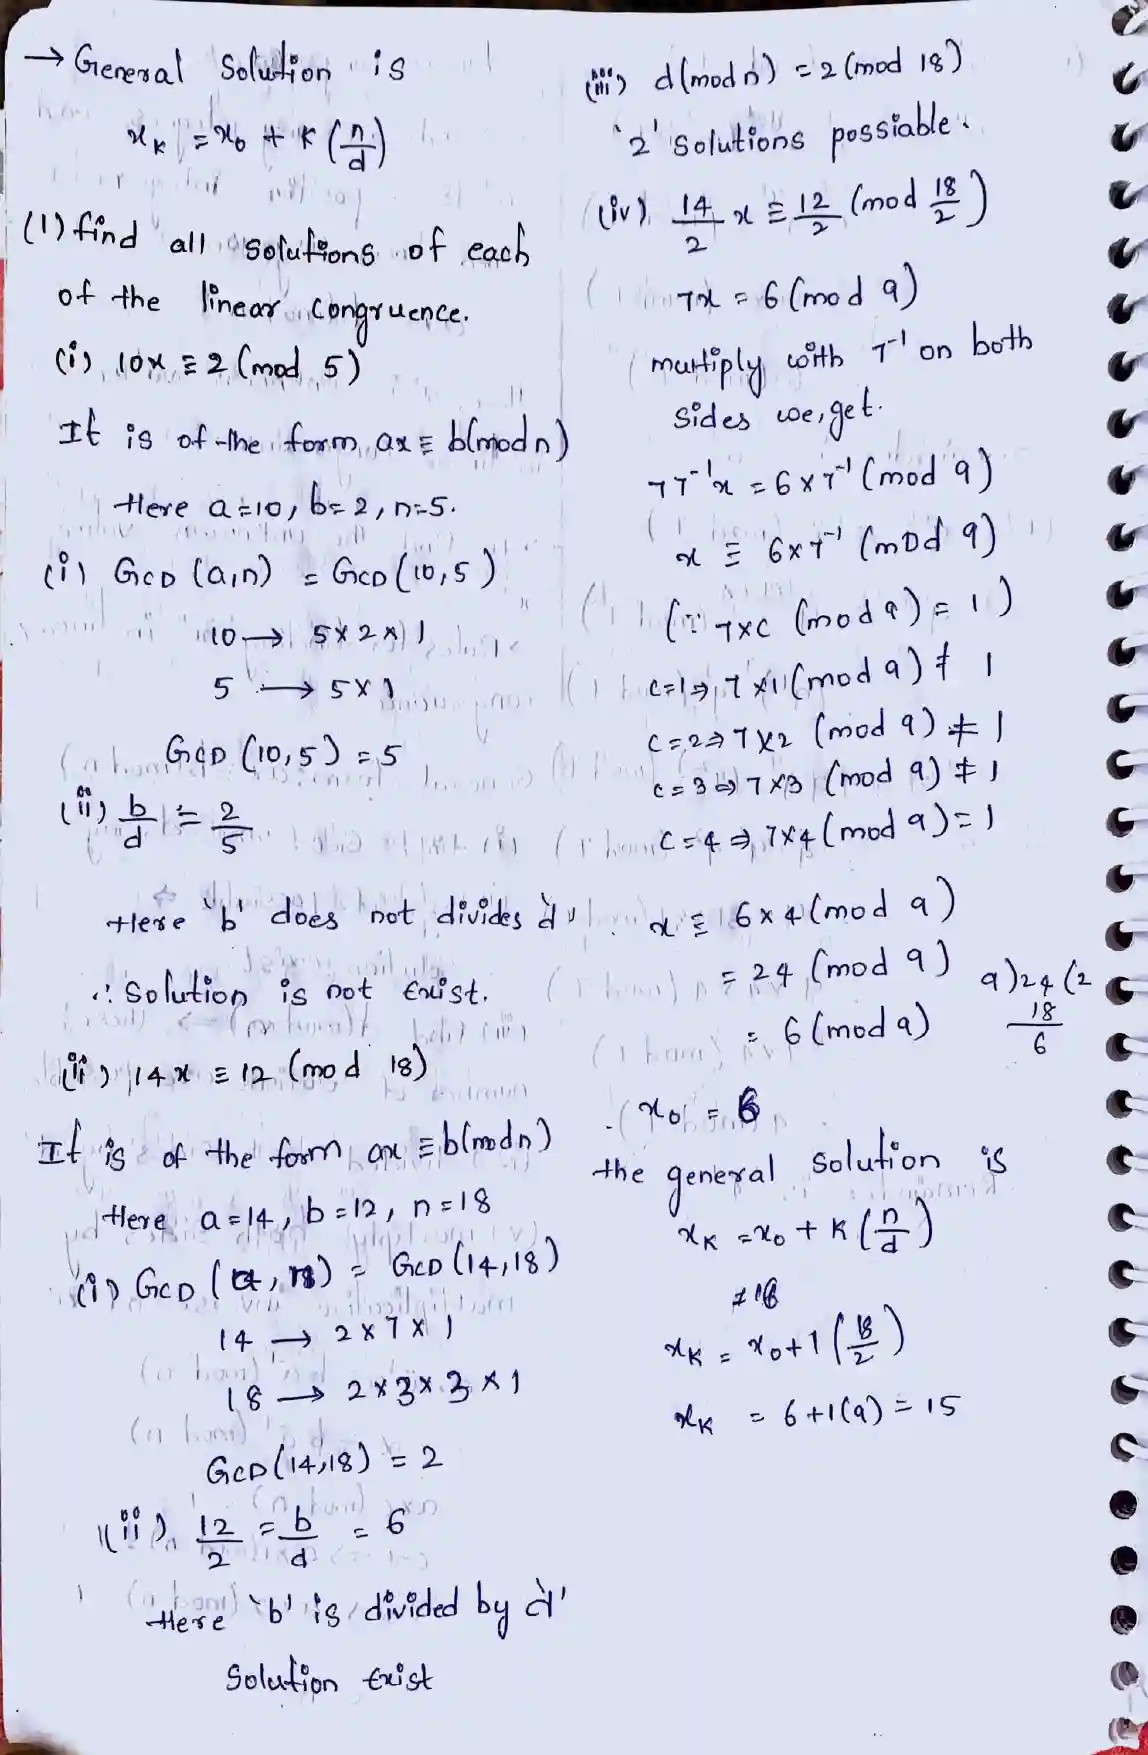 → General Solution is
x_K = x_0 + K (n/d)
(1) find all solutions of each
of the linear congruence.
(i) 10x ≡ 2 (mod 5)
It is of the form ax ≡ b(mod n)
Here a=10, b=2, n=5.
(i) GCD (a,n) = GCD (10,5)
10 → 5×2×1
5 → 5×1
GCD (10,5) = 5
(ii) b/d = 2/5
Here 'b' does not divides 'd'
∴ Solution is not Exist.
(ii) 14x ≡ 12 (mod 18)
It is of the form ax ≡ b(mod n)
Here a=14, b=12, n=18
(i) GCD (a, n) = GCD (14,18)
14 → 2×7×1
18 → 2×3×3×1
GCD (14,18) = 2
(ii) 12/2 = b/d = 6
Here 'b' is divided by 'd'
Solution Exist
(iii) d(mod n) = 2 (mod 18)
'2' Solutions possiable.
(iv) 14/2 x ≡ 12/2 (mod 18/2)
7x = 6 (mod 9)
multiply with 7^-1 on both
sides we, get.
77^-1x = 6×7^-1 (mod 9)
x ≡ 6×7^-1 (mod 9)
(∵ 7×C (mod 9) = 1)
C=1 ⇒ 7×1 (mod 9) ≠ 1
C=2 ⇒ 7×2 (mod 9) ≠ 1
C=3 ⇒ 7×3 (mod 9) ≠ 1
C=4 ⇒ 7×4 (mod 9) = 1
x ≡ 6×4 (mod 9)
= 24 (mod 9)
9)24(2
18
6
= 6 (mod 9)
x_0 = 6
the general solution is
x_K = x_0 + K (n/d)
x_K = x_0 + 1 (18/2)
x_K = 6+1(9) = 15